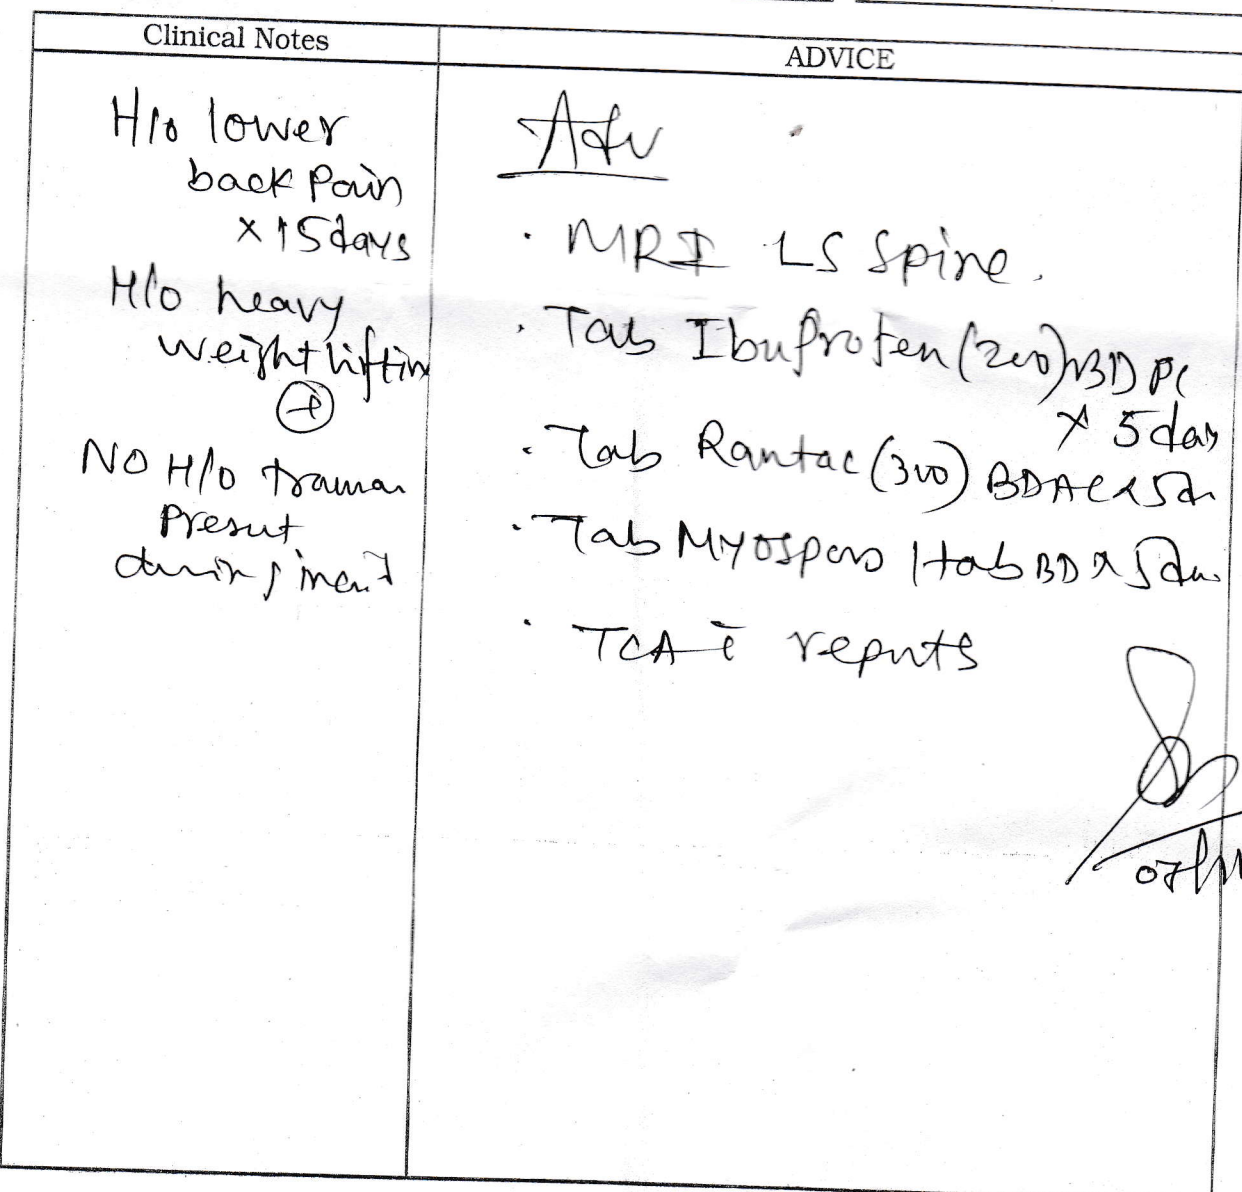 Clinical Notes
ADVICE
H/o lower
back Pain
x 15 days
H/o heavy
weight lifting
NO H/o trauma
Present
during
Adv
· MRI LS Spine.
· Tab Ibuprofen (200) BD PC
x 5 days
· Tab Rantac (300) BD AC x 5d
· Tab Myospas 1 tab BD x 5d
· TCA c̄ reports